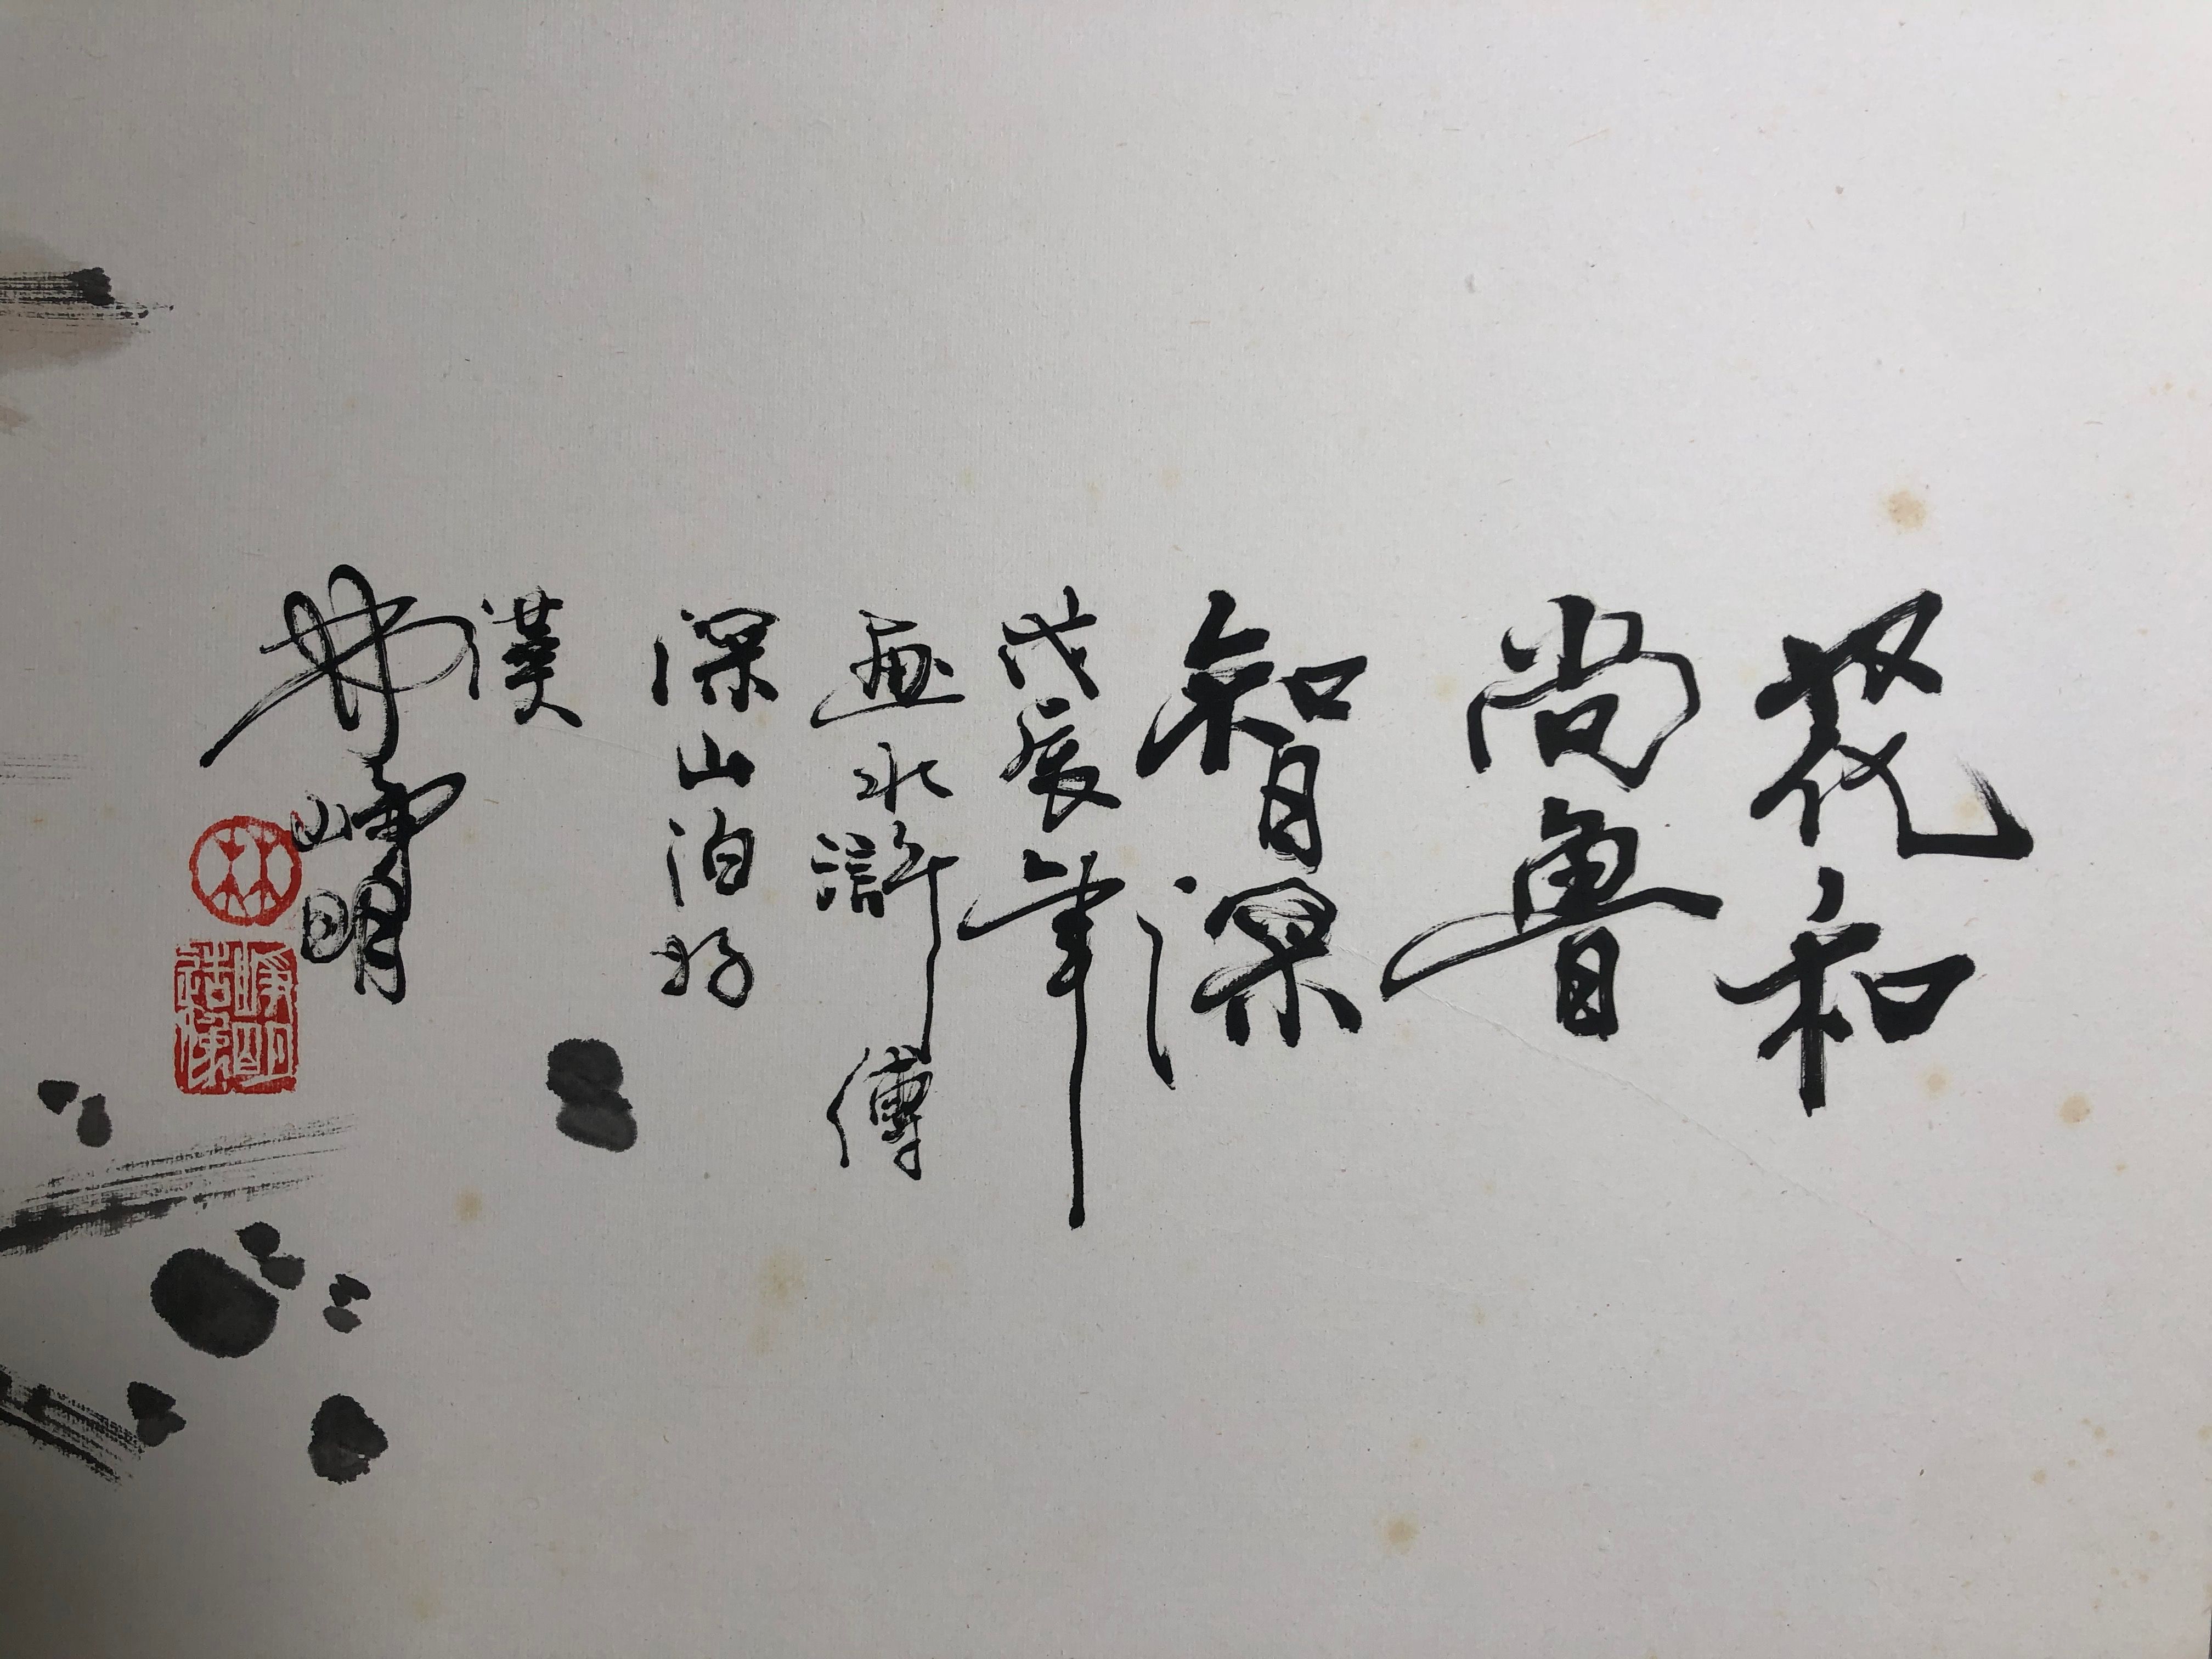 花和
尚魯
智深
戊辰年
畫水滸傳
深山泊好
漢
林崢明
林
崢明